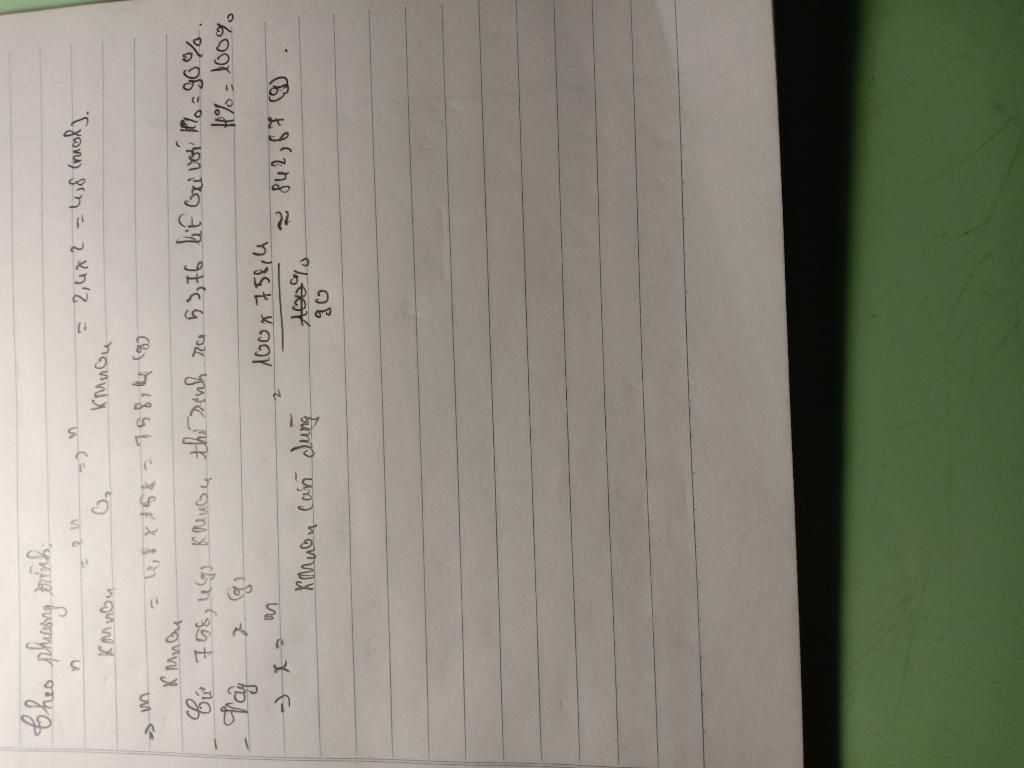 Theo phương trình:
n KMnO4 = 2n O2 => n KMnO4 = 2,4 x 2 = 4,8 (mol).
=> m KMnO4 = 4,8 x 158 = 758,4 (g)
- Cứ 758,4(g) KMnO4 thì sinh ra 53,76 lít oxi với H% = 90%.
- Vậy x (g) H% = 100%
=> x = m KMnO4 cần dùng = 100 x 758,4 / 90 ≈ 842,67 (g).